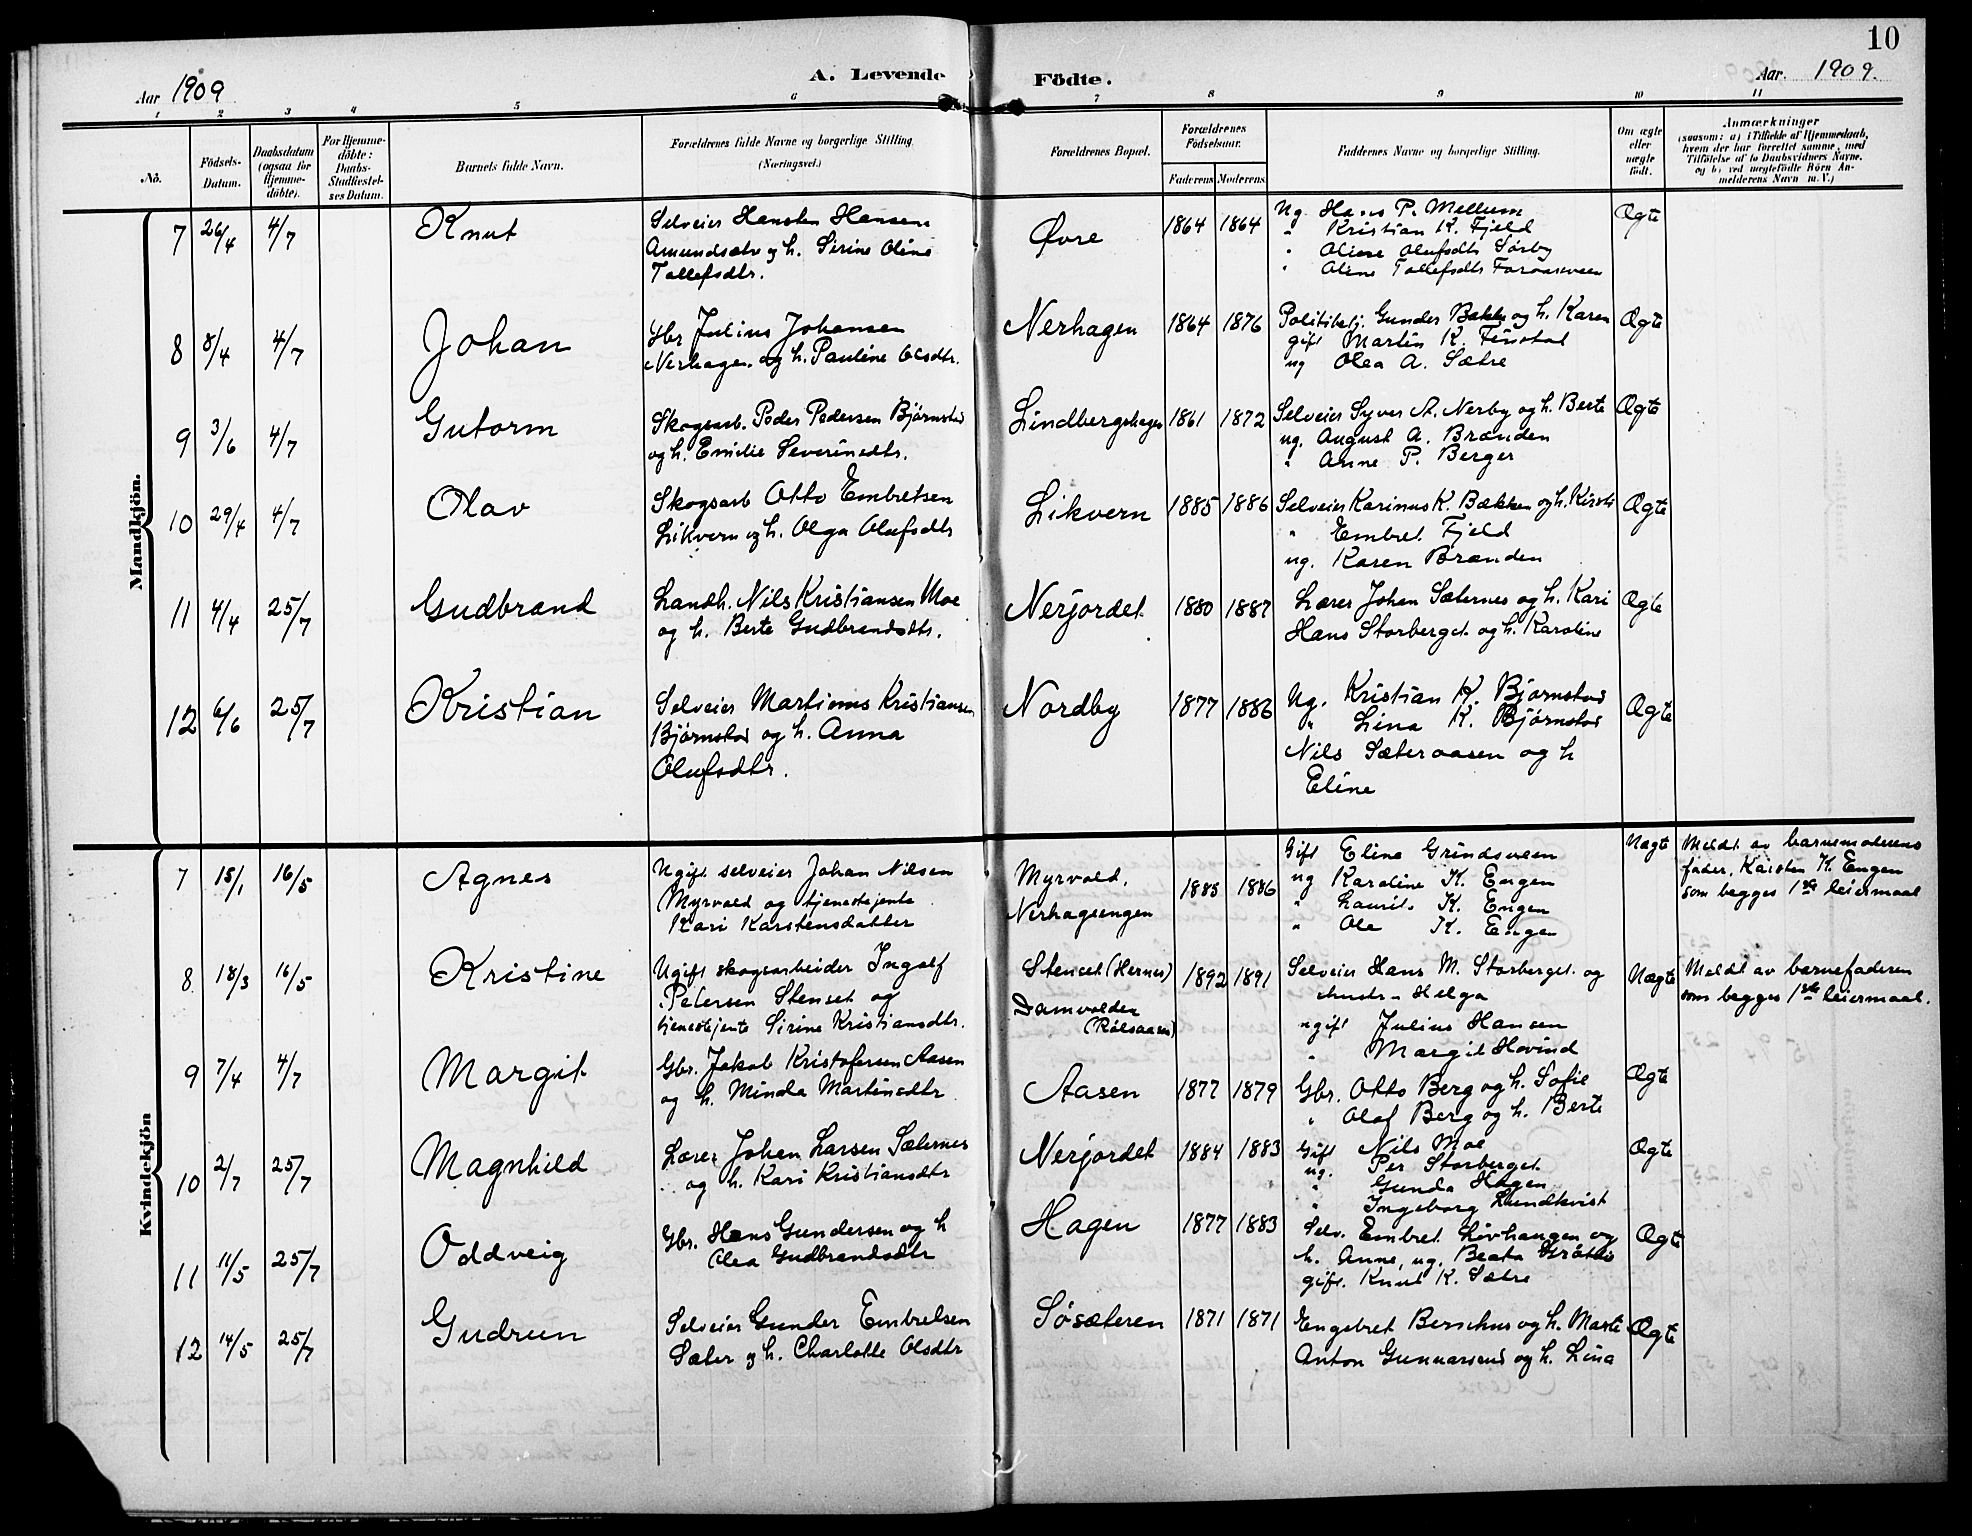 10
Aar 1909
A. Levende Födte.
Aar. 1909.
1 2 3 4 5 6 7 8 9 10 11
No.
Födsels-Datum.
Daabsdatum (ogsaa for Hjemme-döbte).
For Hjemme-döbte: Daabs-Stadfæstel-ses Datum.
Barnets fulde Navn.
Forældrenes fulde Navne og borgerlige Stilling. (Næringsvei.)
Forældrenes Bopæl.
Forældrenes Födselsaar.
Faderens Moderens
Faddernes Navne og borgerlige Stilling.
Om ægte eller uægte födt.
Anmærkninger
(saasom: a) i Tilfælde af Hjemmedaab, hvem der har forrettet samme, med Tilföielse af to Daabsvidners Navne, og b) ved uægtefödte Börn Anmelderens Navn m. V.)
Mandkjön.
7 26/4 4/7 Knut
Selveier Hansten Hansen
Amundsætr og h. Sirine Oline
Tollefsdtr.
Øvre 1864 1864
Ug. Hans P. Mellum
" Kristian K. Fjeld
" Oliene Olufsdtr Sørby
" Oline Tollefsdtr
Ægte
8 8/4 4/7 Johan
Gbr Julius Johansen
Nerhagen og h. Pauline Olsdtr.
Nerhagen 1864 1876
Politibetj. Gunder Bakke og h. Karen
gift Martin K. Finstad
ug Olea A. Sætre
Ægte
9 3/6 4/7 Gutorm
Skogsarb. Peder Pedersen Bjørnstad
og h. Emilie Severinsdtr.
Lindbergshagen 1861 1872
Selveier Syver A. Nerby og h. Berte
ug. August A. Brænden
" Anne P. Berger
Ægte
10 29/4 4/7 Olav
Skogsarb Otto Embretsen
Likvern og h. Olga Olufsdtr
Likvern 1885 1886
Selveier Karinus K. Bækken og h. Kirsti
" Embret Fjeld
ug. Karen Brænden
Ægte
11 4/4 25/7 Gudbrand
Landh. Nils Kristiansen Moe
og h. Berte Gudbrandsdtr.
Nerjordet 1880 1887
Lærer Johan Sæternes og h. Kari
Hans Storberget og h. Karoline
Ægte
12 6/6 25/7 Kristian
Selveier Martinus Kristiansen
Bjørnstad og h. Anna
Olufsdtr.
Nordby 1877 1886
Ug. Kristian K. Bjørnstad
" Lina K. Bjørnstad
Nils Sæteraasen og h
Eline
Ægte
Kvindekjön
7 15/1 16/5 Agnes
Ugift selveier Johan Nilsen
Myrvold og tjenestejente
Kari Karstensdatter
Myrvold,
Nerhagsengen
1885 1886
Gift Eline Grindsveen
ug Karoline K. Engen
" Laurits K. Engen
" Ole K. Engen
Uægte
Meldt av barnemoderens
fader, Karsten K. Engen
som begges 1ste leiermaal
8 18/3 16/5 Kristine
Ugift skogsarbeider Ingolf
Petersen Stenset og
tjenestejente Sirine Kristiansdtr.
Stenset (Hernes)
Damvolden
1892 1891
Selveier Hans M. Storberget og
hustr. Helga
ugift Julius Hansen
" Margit Hovind
Uægte
Meldt av barnefaderen
som begges 1ste leiermaal.
9 7/4 4/7 Margit
Gbr. Jakob Kristofersen Aasen
og h. Minda Martinsdtr
Aasen 1877 1879
Gbr. Otto Berg og h. Sofie
" Olaf Berg og h. Berte
Ægte
10 2/7 25/7 Magnhild
Lærer Johan Larsen Sæternes
og h. Kari Kristiansdtr
Nerjordet 1884 1883
Gift Nils Moe
ug. Per Storberget
" Gunda Hagen
" Ingeborg Lundkvist
Ægte
11 11/5 25/7 Oddveig
Gbr. Hans Gundersen og h
Olea Gudbrandsdtr
Hagen 1877 1883
Selv. Embret Løvhaugen og
h. Anne, ug. Beata
gift. Knut K. Sætre
Ægte
12 14/5 25/7 Gudrun
Selveier Gunder Embretsen
Sæter og h. Charlotte Olsdtr
Søsæteren 1871 1871
Engebret Berschus og h. Marte
Anton Gunnarsrud og h. Lina
Ægte